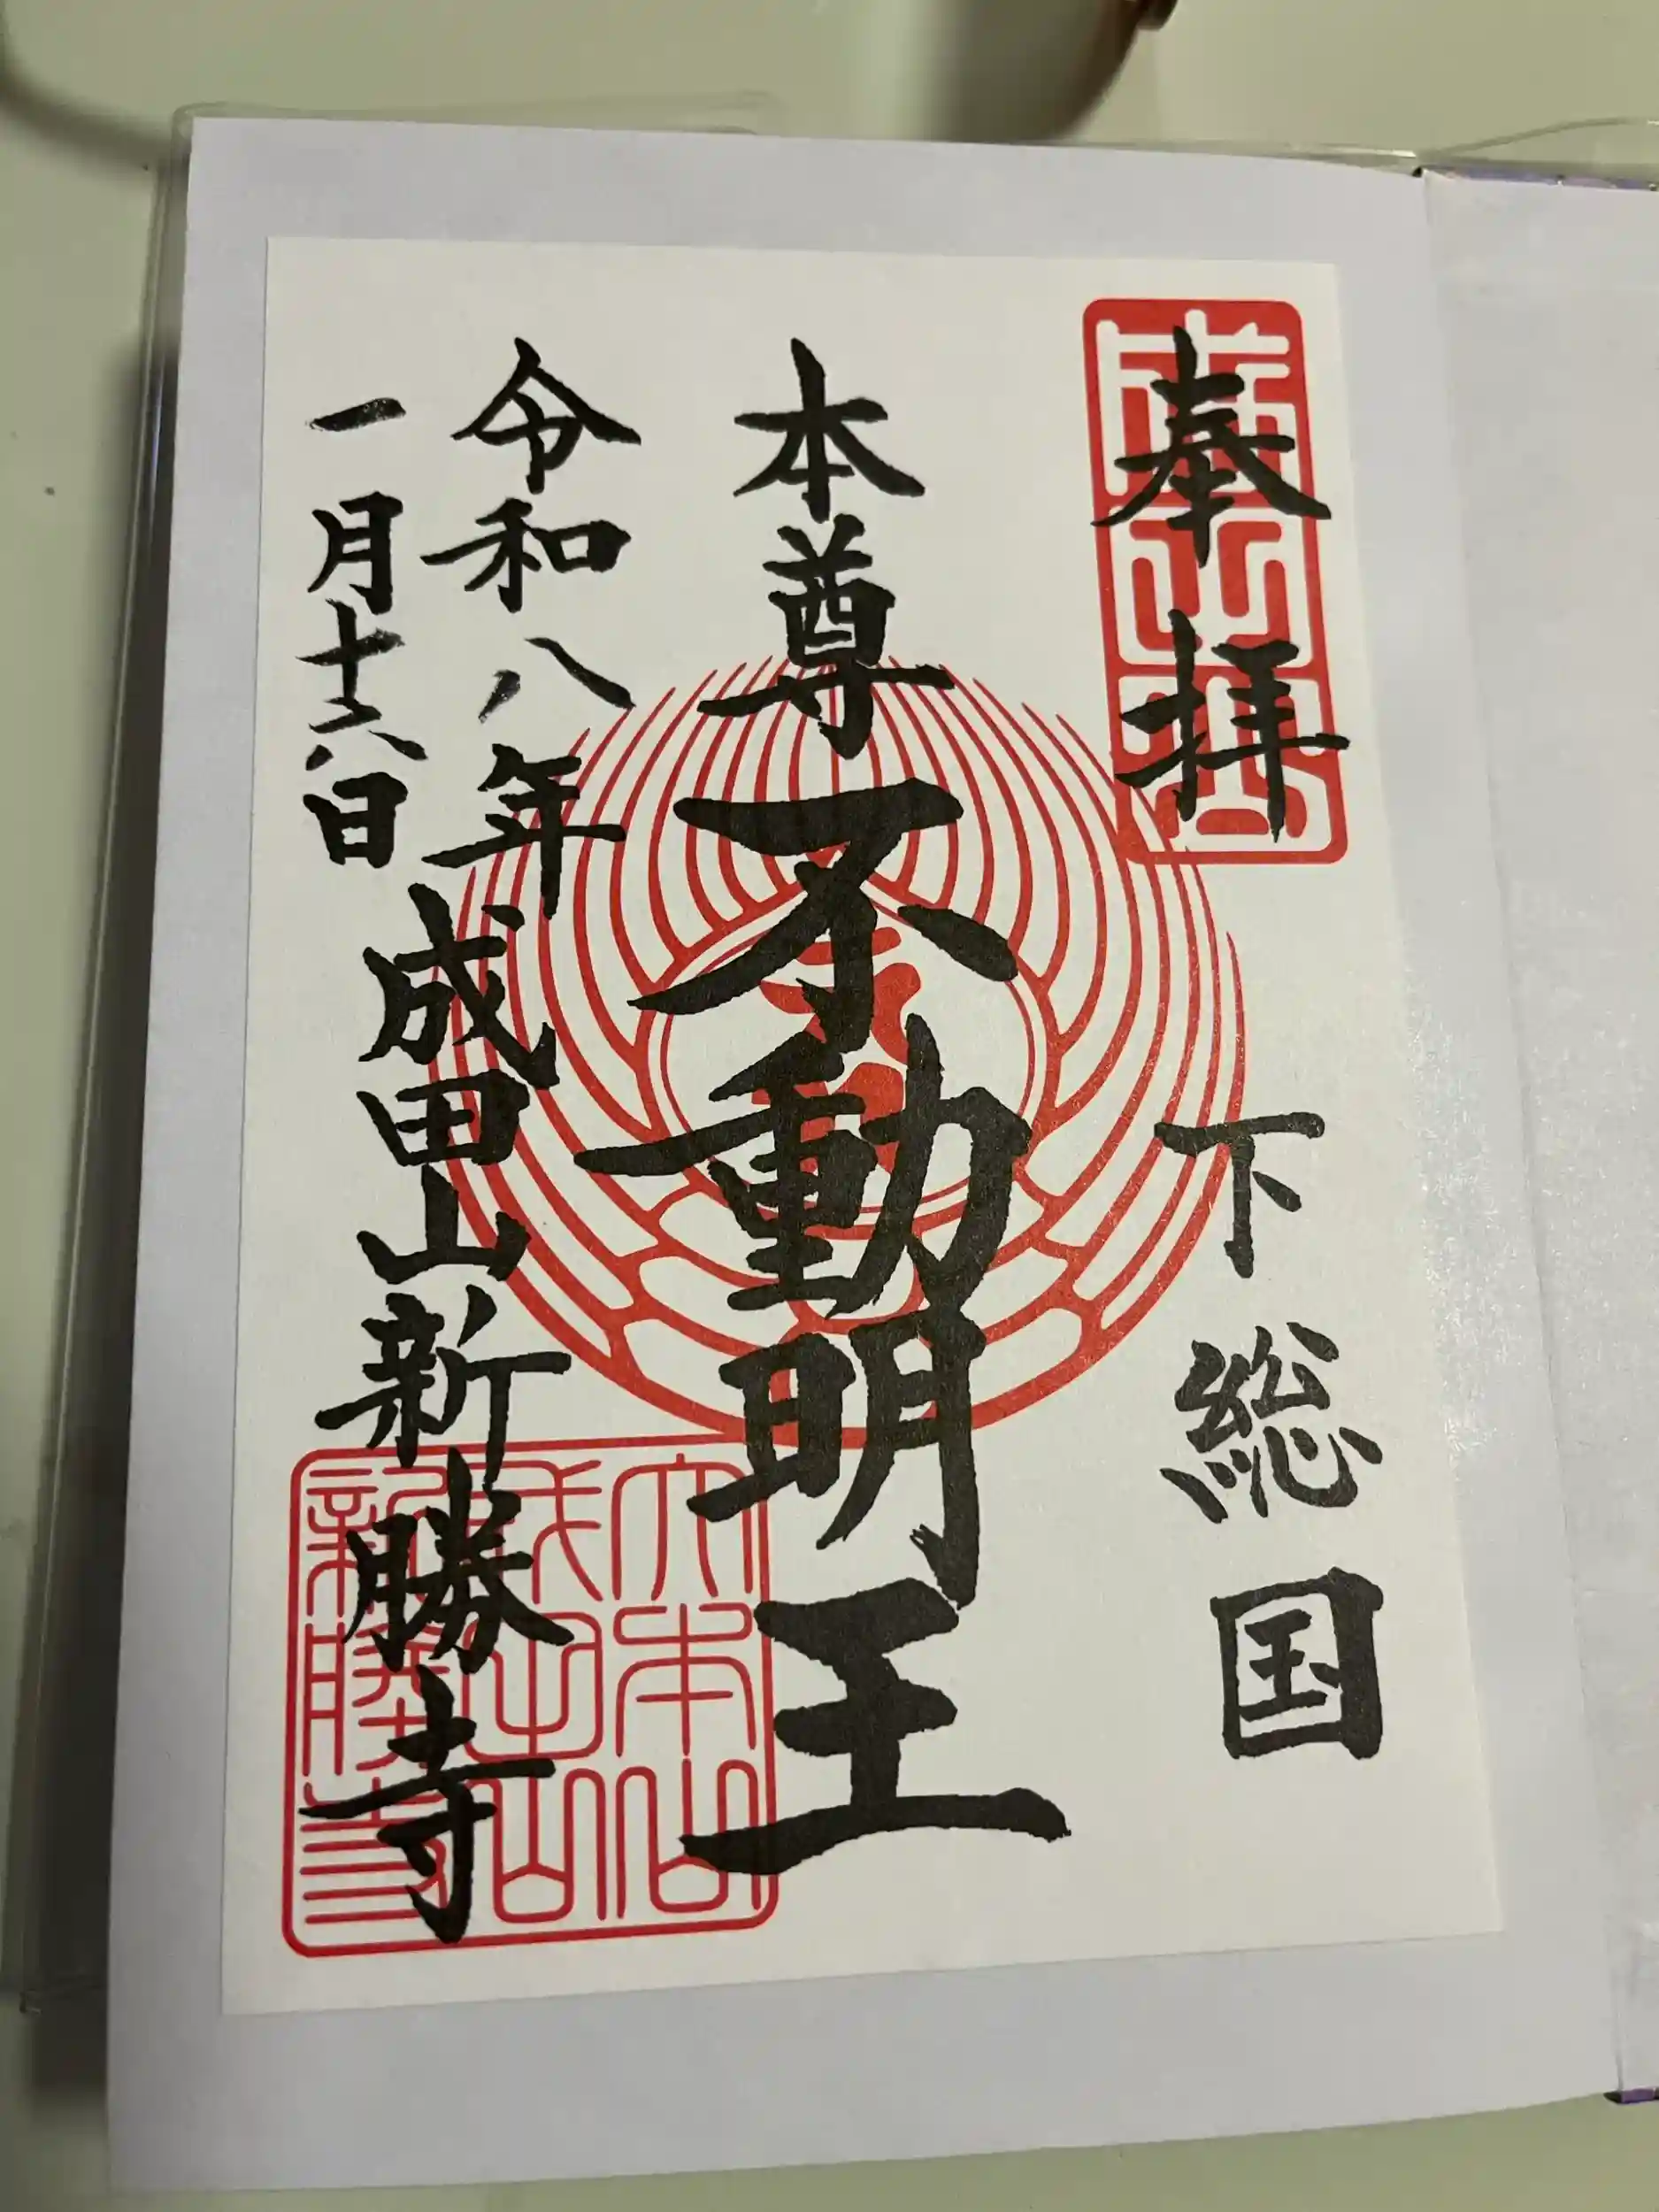 奉拝
下総国
本尊不動明王
令和八年
一月十六日
成田山新勝寺
大本山
成田山
新勝寺